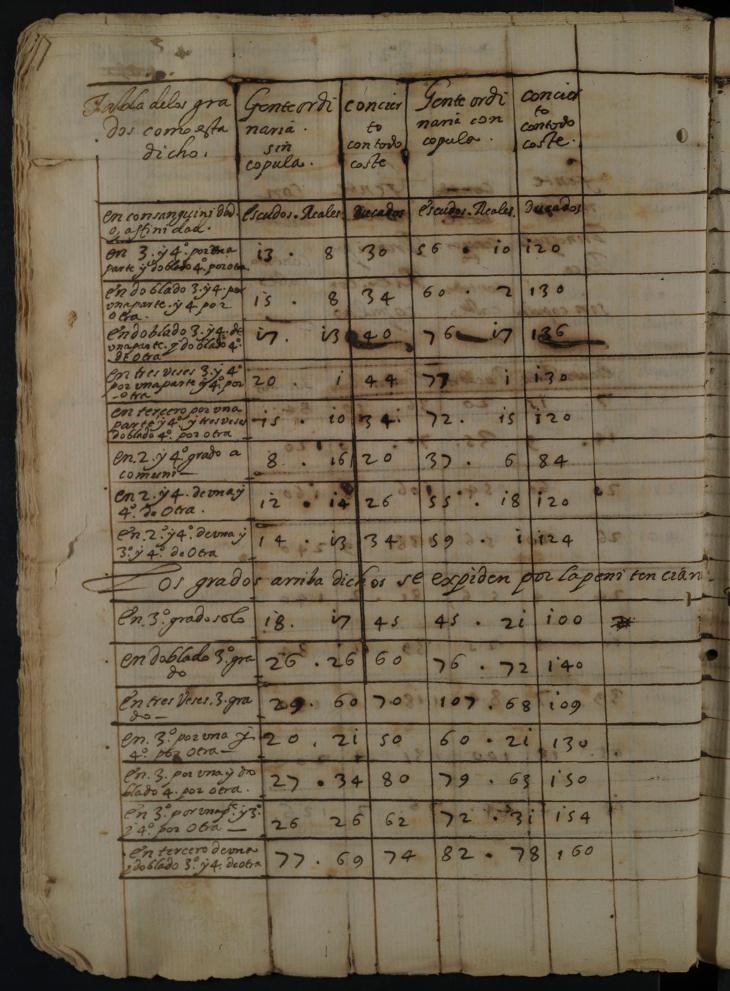 Tabla de los gra
dos como esta
dicho.
Gente ordi
naria.
sin
copula.
concier
to
con todo
coste
Gente ordi
naria con
copula.
concier
to
con todo
coste.
en consanguinidad
o, affinidad.
escudos. Reales.
Ducados
escudos. Reales.
Ducados
en 3. y 4º. por una
parte y doblado 4º. por otra
i3 . 8
30
56 . io
i20
en doblado 3. y 4. por
una parte. y 4. por
otra.
i5 . 8
34
60 . 2
i30
en doblado 3. y 4. de
una parte. y doblado 4º.
de otra
i7. i3
40
76 i7
i36
en tres veses 3. y 4º
por una parte y 4º. por
otra
20 . i
44
77 i
i30
en tercero por una
parte y 4º. y tres veses
doblado 4º. por otra
i5 . io
34.
72. i5
i20
en. 2. y 4º grado a
comuni
8 . i6
20
37 . 6
84
en 2. y 4. de una y
4º. de otra.
i2 . i4
26
55 . i8
i20
en. 2º. y 4º. de una y
3º. y 4º. de otra
i4 . i3
34
59 . i
i24
Los grados arriba dichos se expiden por la peni tencian
En. 3º. grado solo
i8. i7
45
45 . 2i
i00
en doblado 3º. gra
do
26 . 26
60
76 . 72
i40
en tres veses. 3. gra
do
29. 60
70
107 . 68
i09
en. 3º. por una y
4º. por otra
20 . 2i
50
60 . 2i
i30
en 3. por una y do
blado 4. por otra.
27 . 34
80
79 . 63
i50
en 3º. por una pte. y 3º.
y 4º. por otra
26 26
62
72 . 3i
i54
en tercero de una
y doblado 3º. y 4. de otra
77 . 69
74
82 . 78
160